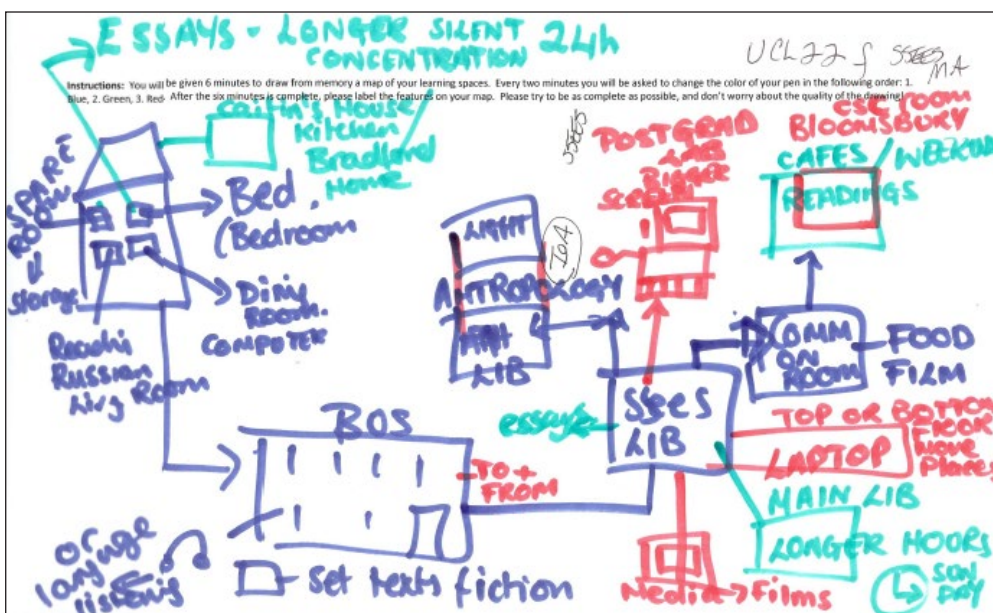 ESSAYS - LONGER SILENT
CONCENTRATION 24h
UCL22 f SSEES
MA
Instructions: You will be given 6 minutes to draw from memory a map of your learning spaces. Every two minutes you will be asked to change the color of your pen in the following order: 1.
Blue, 2. Green, 3. Red. After the six minutes is complete, please label the features on your map. Please try to be as complete as possible, and don't worry about the quality of the drawing!
House
Kitchen
Bradford
House
SPARE
ROOM
Storage
Bed.
(Bedroom
Room.
COMPUTER
Russian
Room
SSEES
POSTGRAD
LAB
BIGGER
SCREEN
ROOM
BLOOMSBURY
CAFES /
READINGS
LIGHT
IoA
ANTROPOLOGY
LIB
COMM
ON
ROOM
FOOD
FILM
essays
SSEES
LIB
TOP OR BOTTOM
FLOOR
Places
LAPTOP
BOS
TO +
FROM
MAIN LIB
LONGER HOORS
SON
DAY
set texts fiction
Media
Films